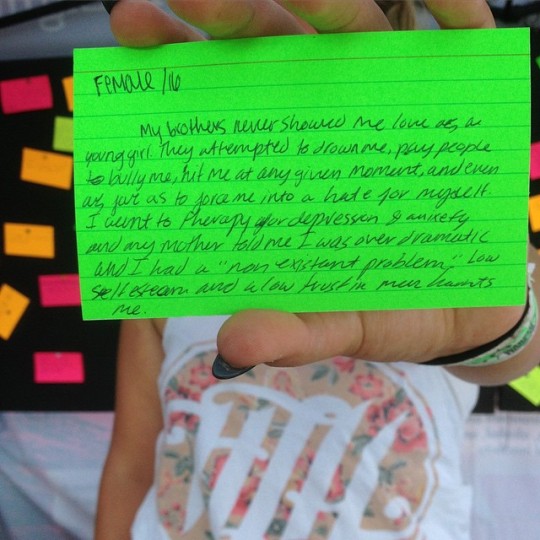 Female / 16
My brothers never showed me love as a
young girl. They attempted to drown me, pay people
to bully me, hit me at any given moment, and even
as far as to force me into a hate for myself.
I went to therapy for depression & anxiety
and my mother told me I was over dramatic
and I had a "non existant problem". Low
self esteem and a low trust in men haunts
me.